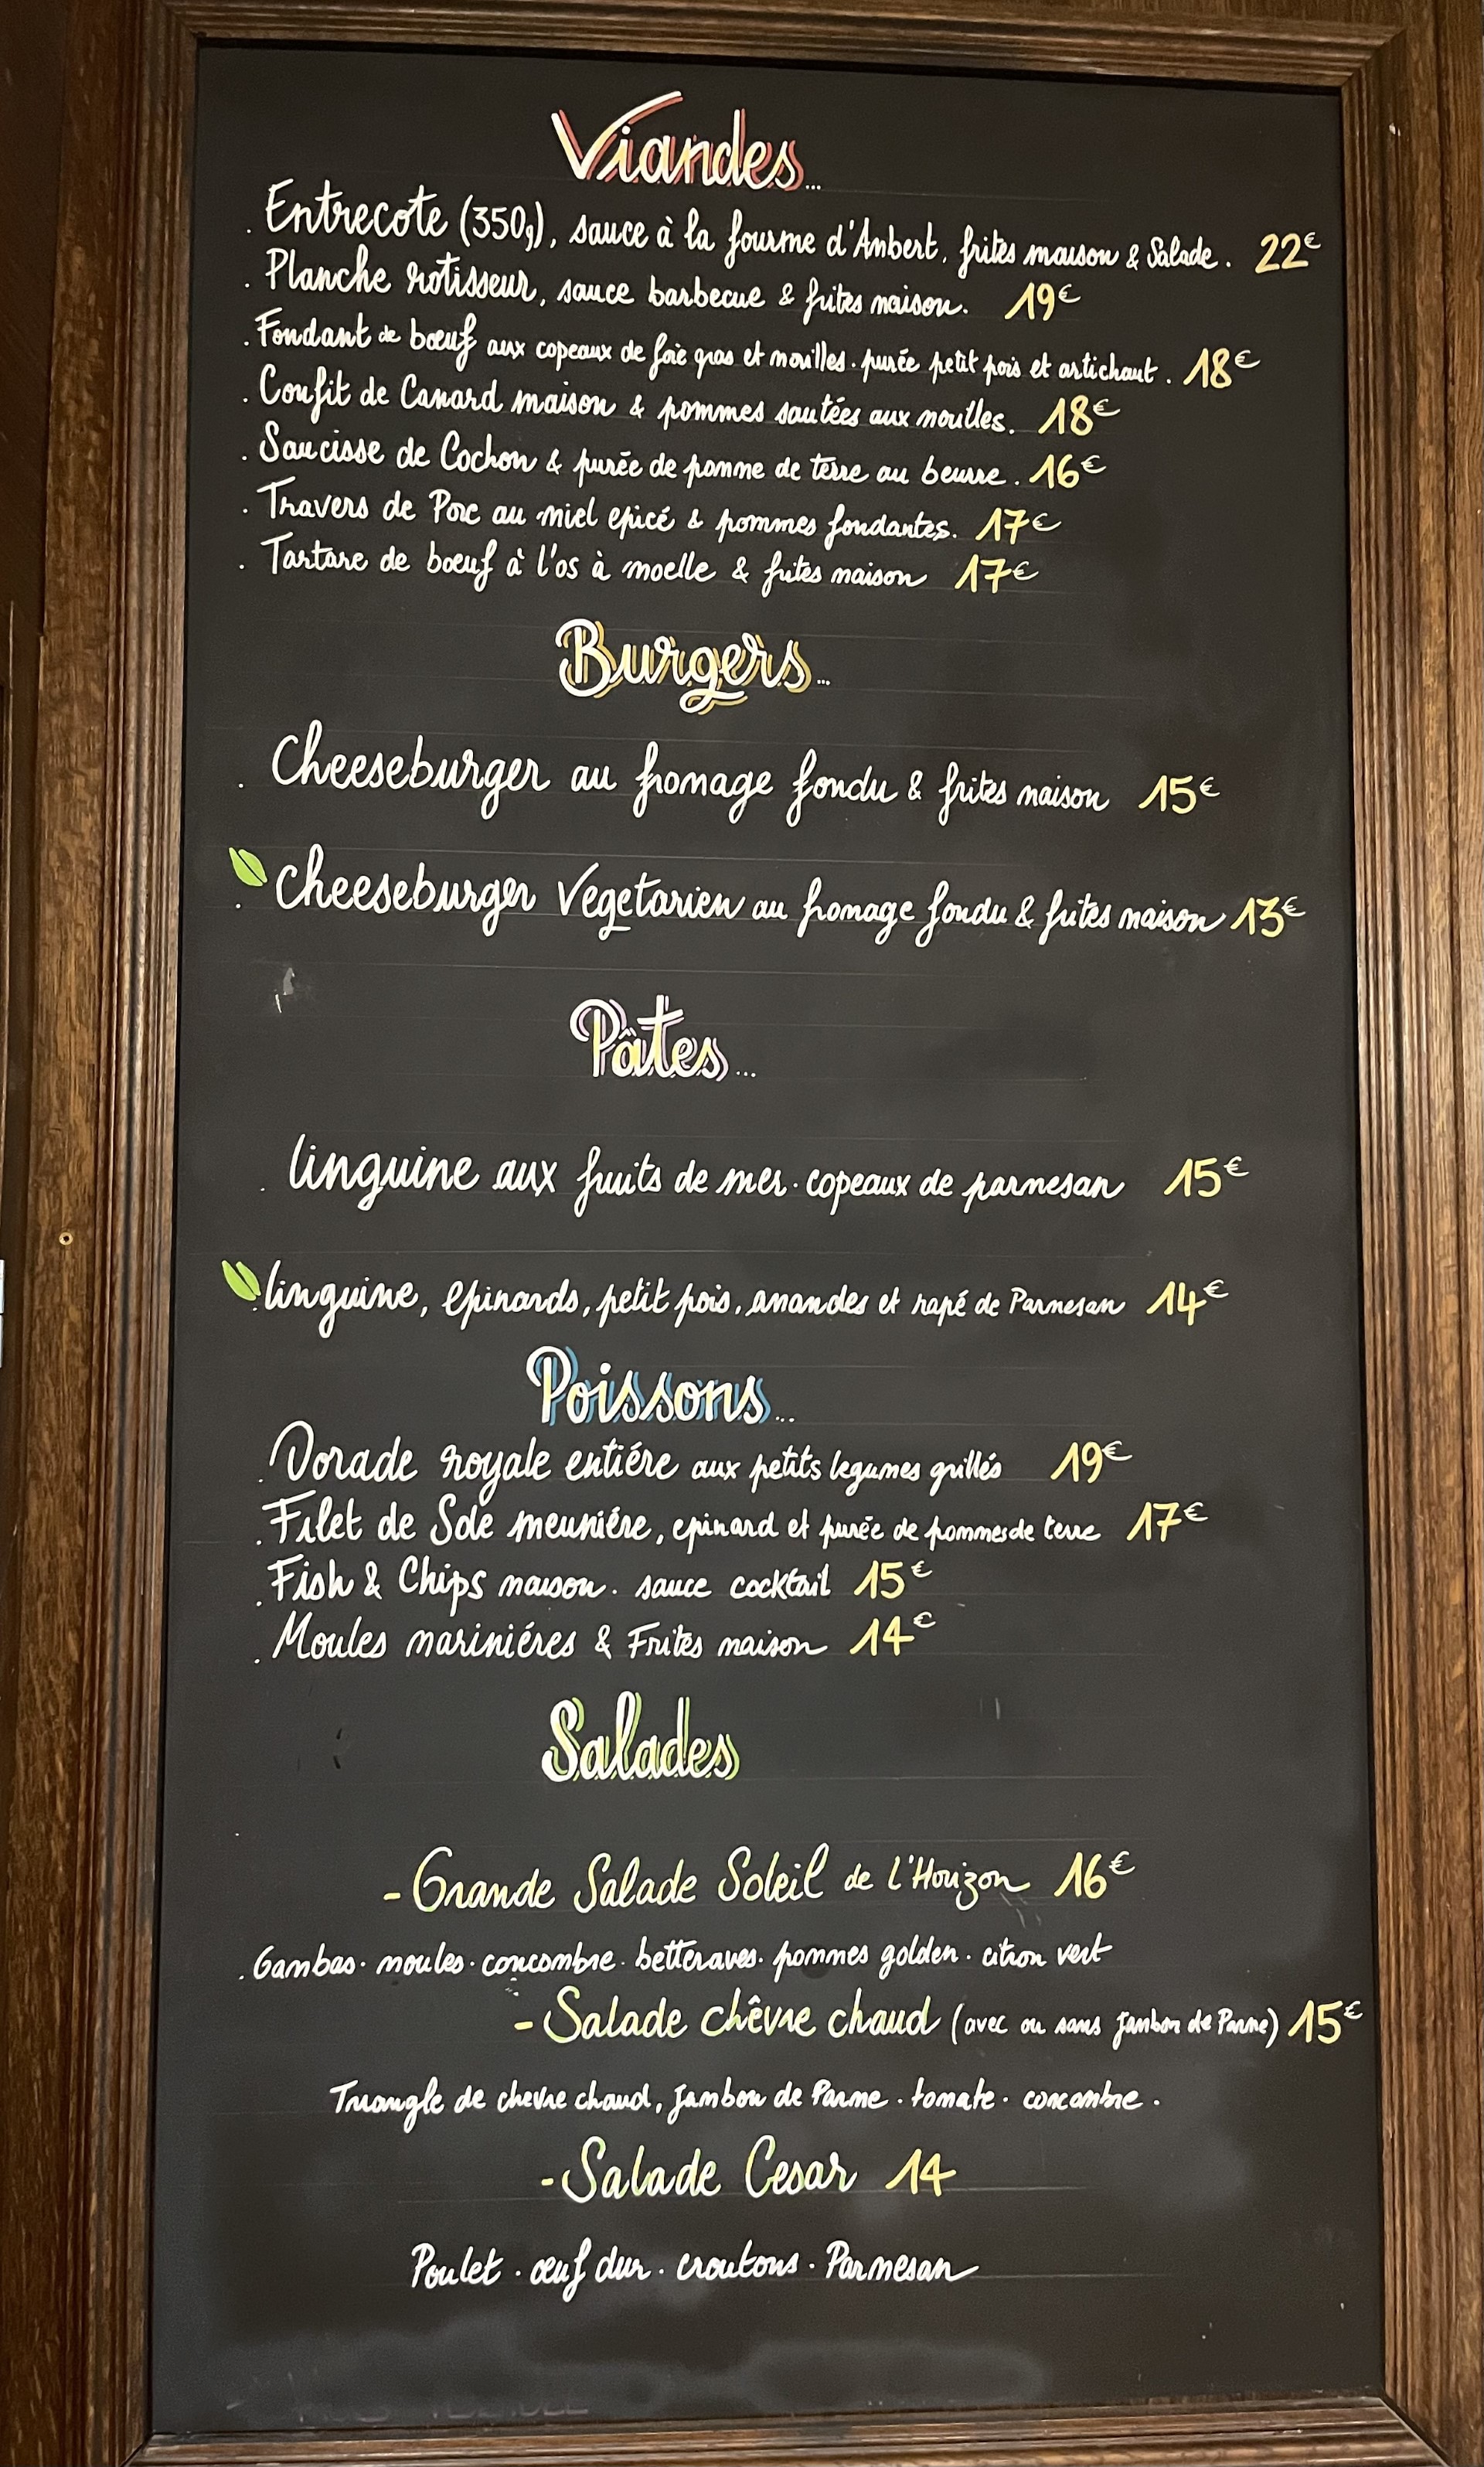 Viandes...
. Entrecote (350g), sauce à la fourme d'Ambert, frites maison & Salade. 22€
. Planche rotisseur, sauce barbecue & frites maison. 19€
. Fondant de bœuf aux copeaux de foie gras et morilles. purée petit pois et artichaut. 18€
. Confit de Canard maison & pommes sautées aux morilles. 18€
. Saucisse de Cochon & purée de pomme de terre au beurre. 16€
. Travers de Porc au miel epicé & pommes fondantes. 17€
. Tartare de bœuf à l'os à moelle & frites maison 17€
Burgers...
. Cheeseburger au fromage fondu & frites maison 15€
. Cheeseburger Vegetarien au fromage fondu & frites maison 13€
Pâtes...
. linguine aux fruits de mer. copeaux de parmesan 15€
. linguine, epinards, petit pois, amandes et rapé de Parmesan 14€
Poissons...
. Dorade royale entiére aux petits legumes grillés 19€
. Filet de Sole meuniére, epinard et purée de pommes de terre 17€
. Fish & Chips maison. sauce cocktail 15€
. Moules mariniéres & Frites maison 14€
Salades
- Grande Salade Soleil de l'Horizon 16€
. Gambas. moules. concombre. betteraves. pommes golden. citron vert
- Salade chêvre chaud (avec ou sans jambon de Parme) 15€
Triangle de chevre chaud, jambon de Parme. tomate. concombre.
- Salade Cesar 14
Poulet. œuf dur. croutons. Parmesan